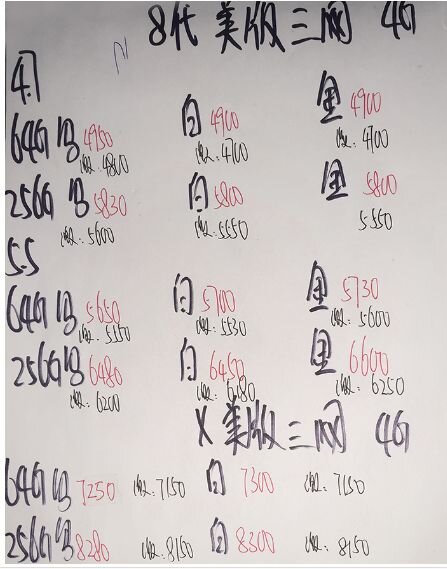 8代 美版三网 4G
4.7
64G 4950 白 4900 4900
收:4800 收:4700 收:4700
256G 5830 白 5800 5800
收:5600 收:5550 5550
5.5
64G 5650 白 5700 5730
收:5550 收:5530 收:5600
256G 6480 白 6450 6600
收:6200 收:6180 收:6250
X 美版三网 4G
64G 7250 收:7150 白 7300 收:7150
256G 8280 收:8150 白 8300 收:8150